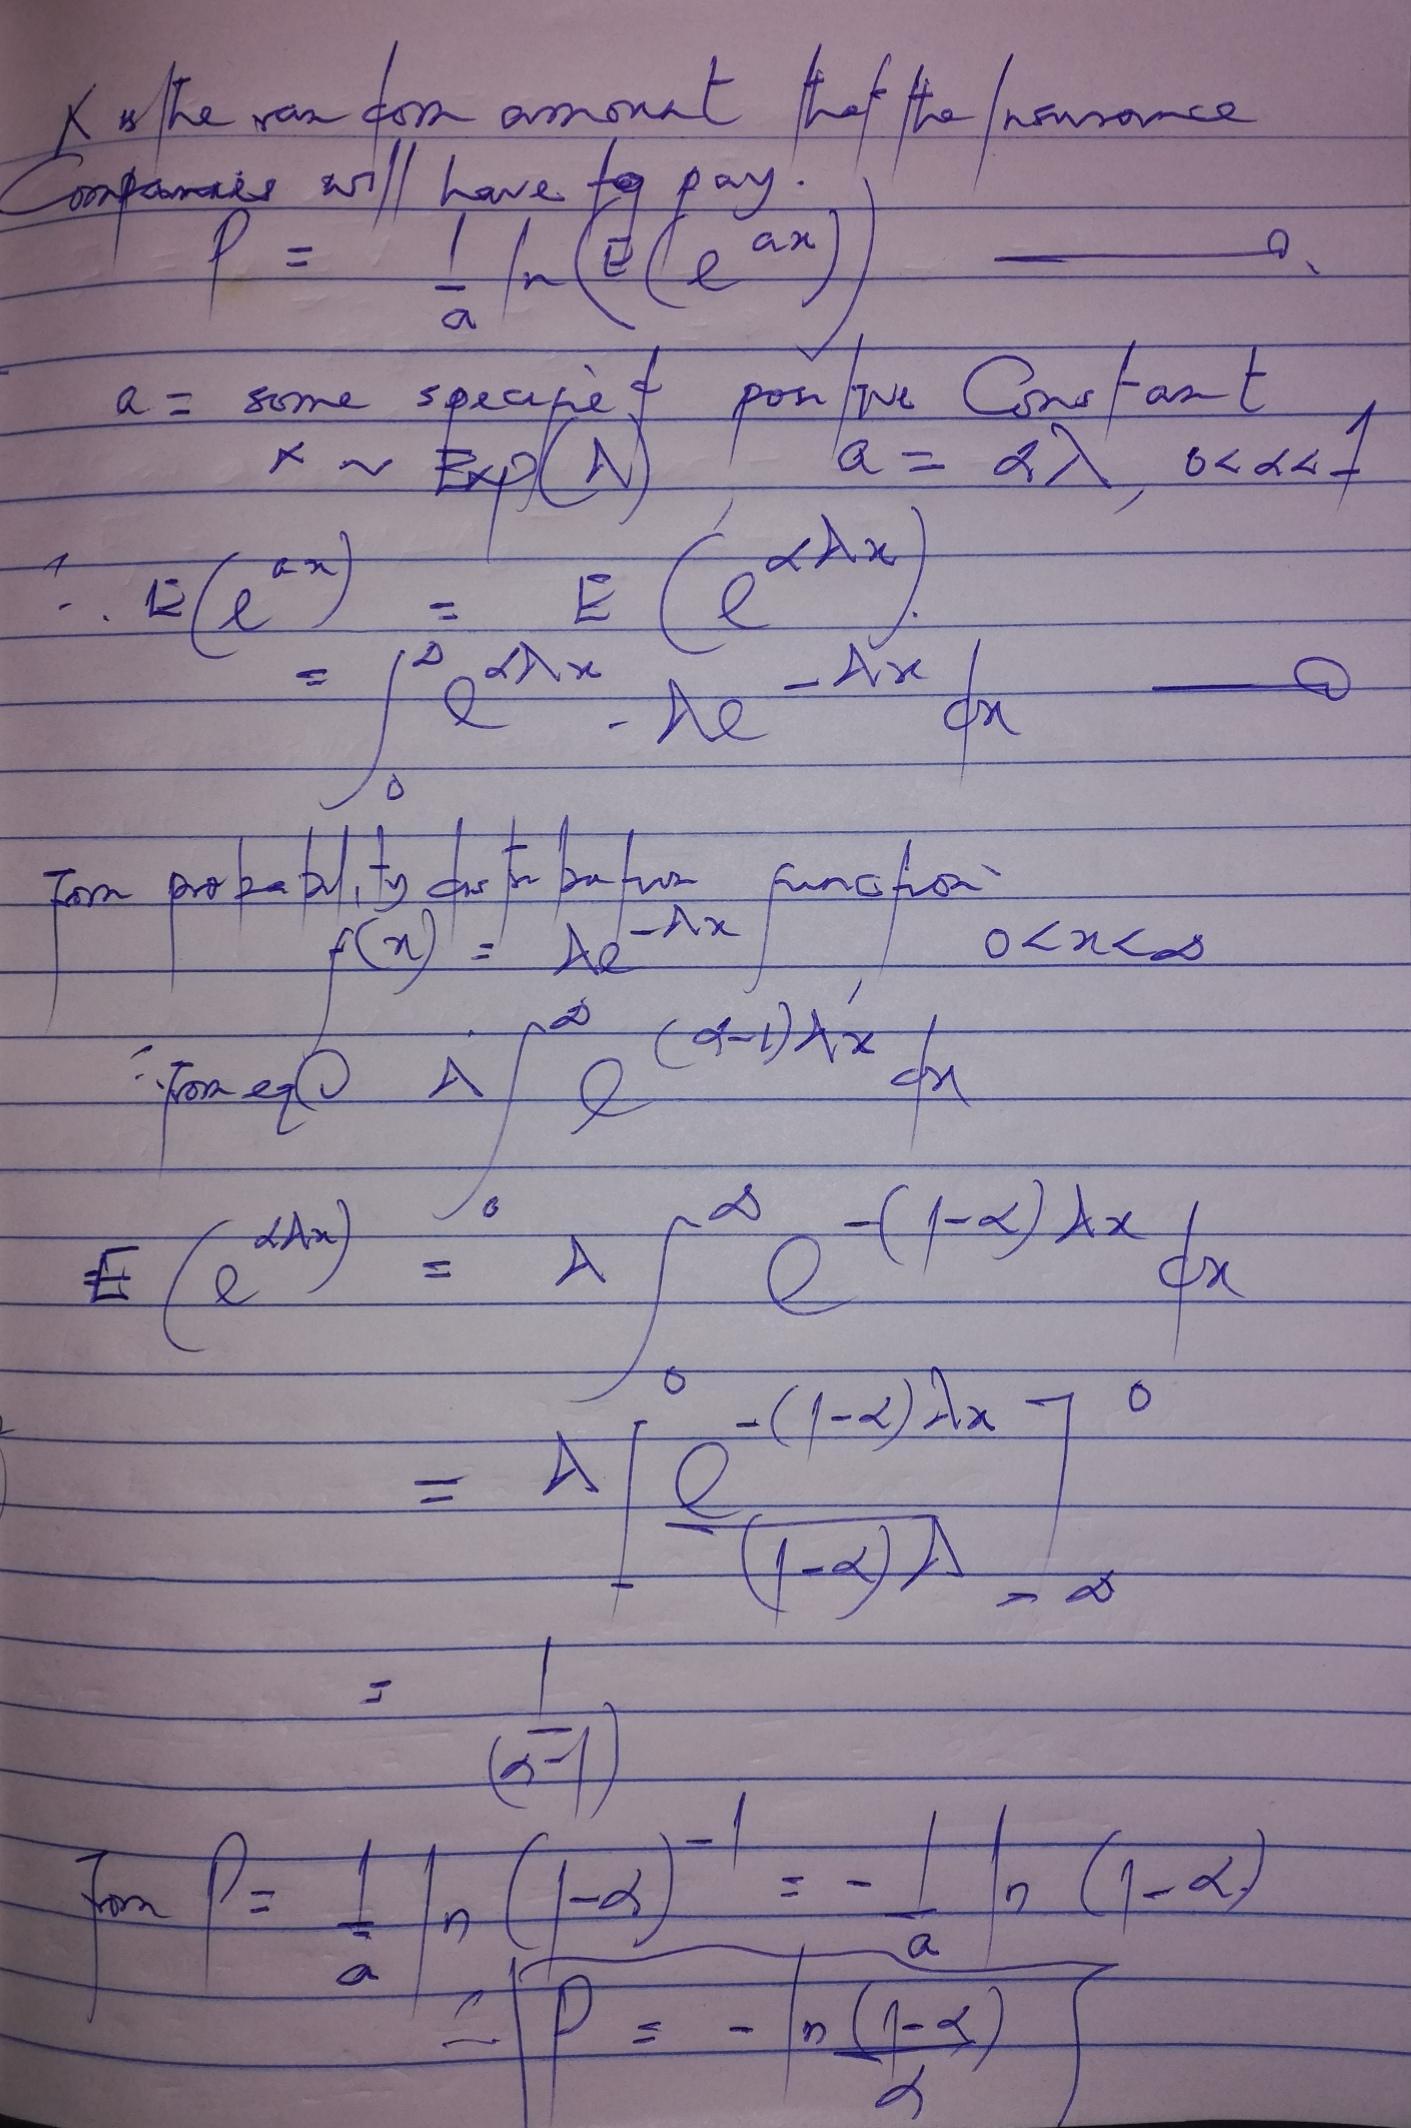 X is the random amount that the Insurance
Companies will have to pay.
P = 1/a ln(E(e^ax))
a = some specified positive Constant
x ~ Exp(λ), a = αλ, 0<α<1
∴ E(e^ax) = E(e^αλx).
= ∫_0^∞ e^αλx . λe^-λx dx
From probability distribution function
f(x) = λe^-λx 0<x<∞
∴ From eq ① λ ∫_0^∞ e^(α-1)λx dx
E(e^αλx) = λ ∫_0^∞ e^-(1-α)λx dx
= λ [e^-(1-α)λx / (1-α)λ]^0_-∞
= 1/(α-1)
From P = 1/a ln(1-α)^-1 = -1/a ln(1-α)
∴ P = -ln(1-α)/α